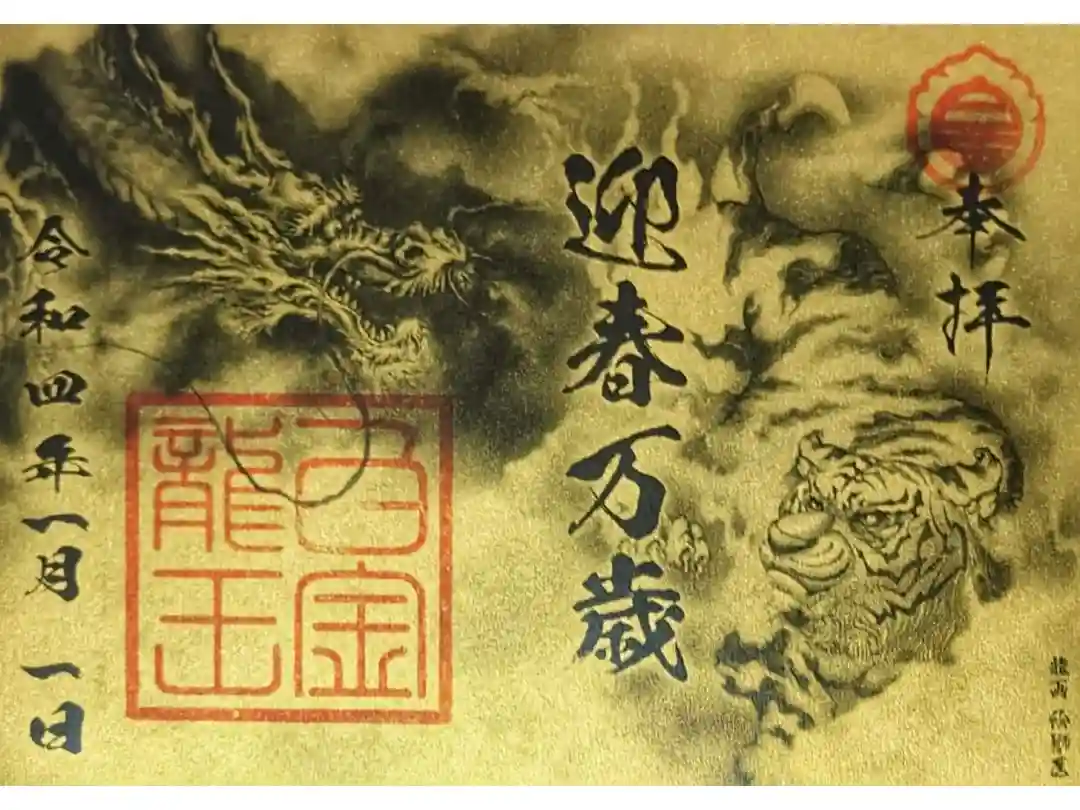 奉拝
迎春万歳
金
龍王
令和四年一月一日